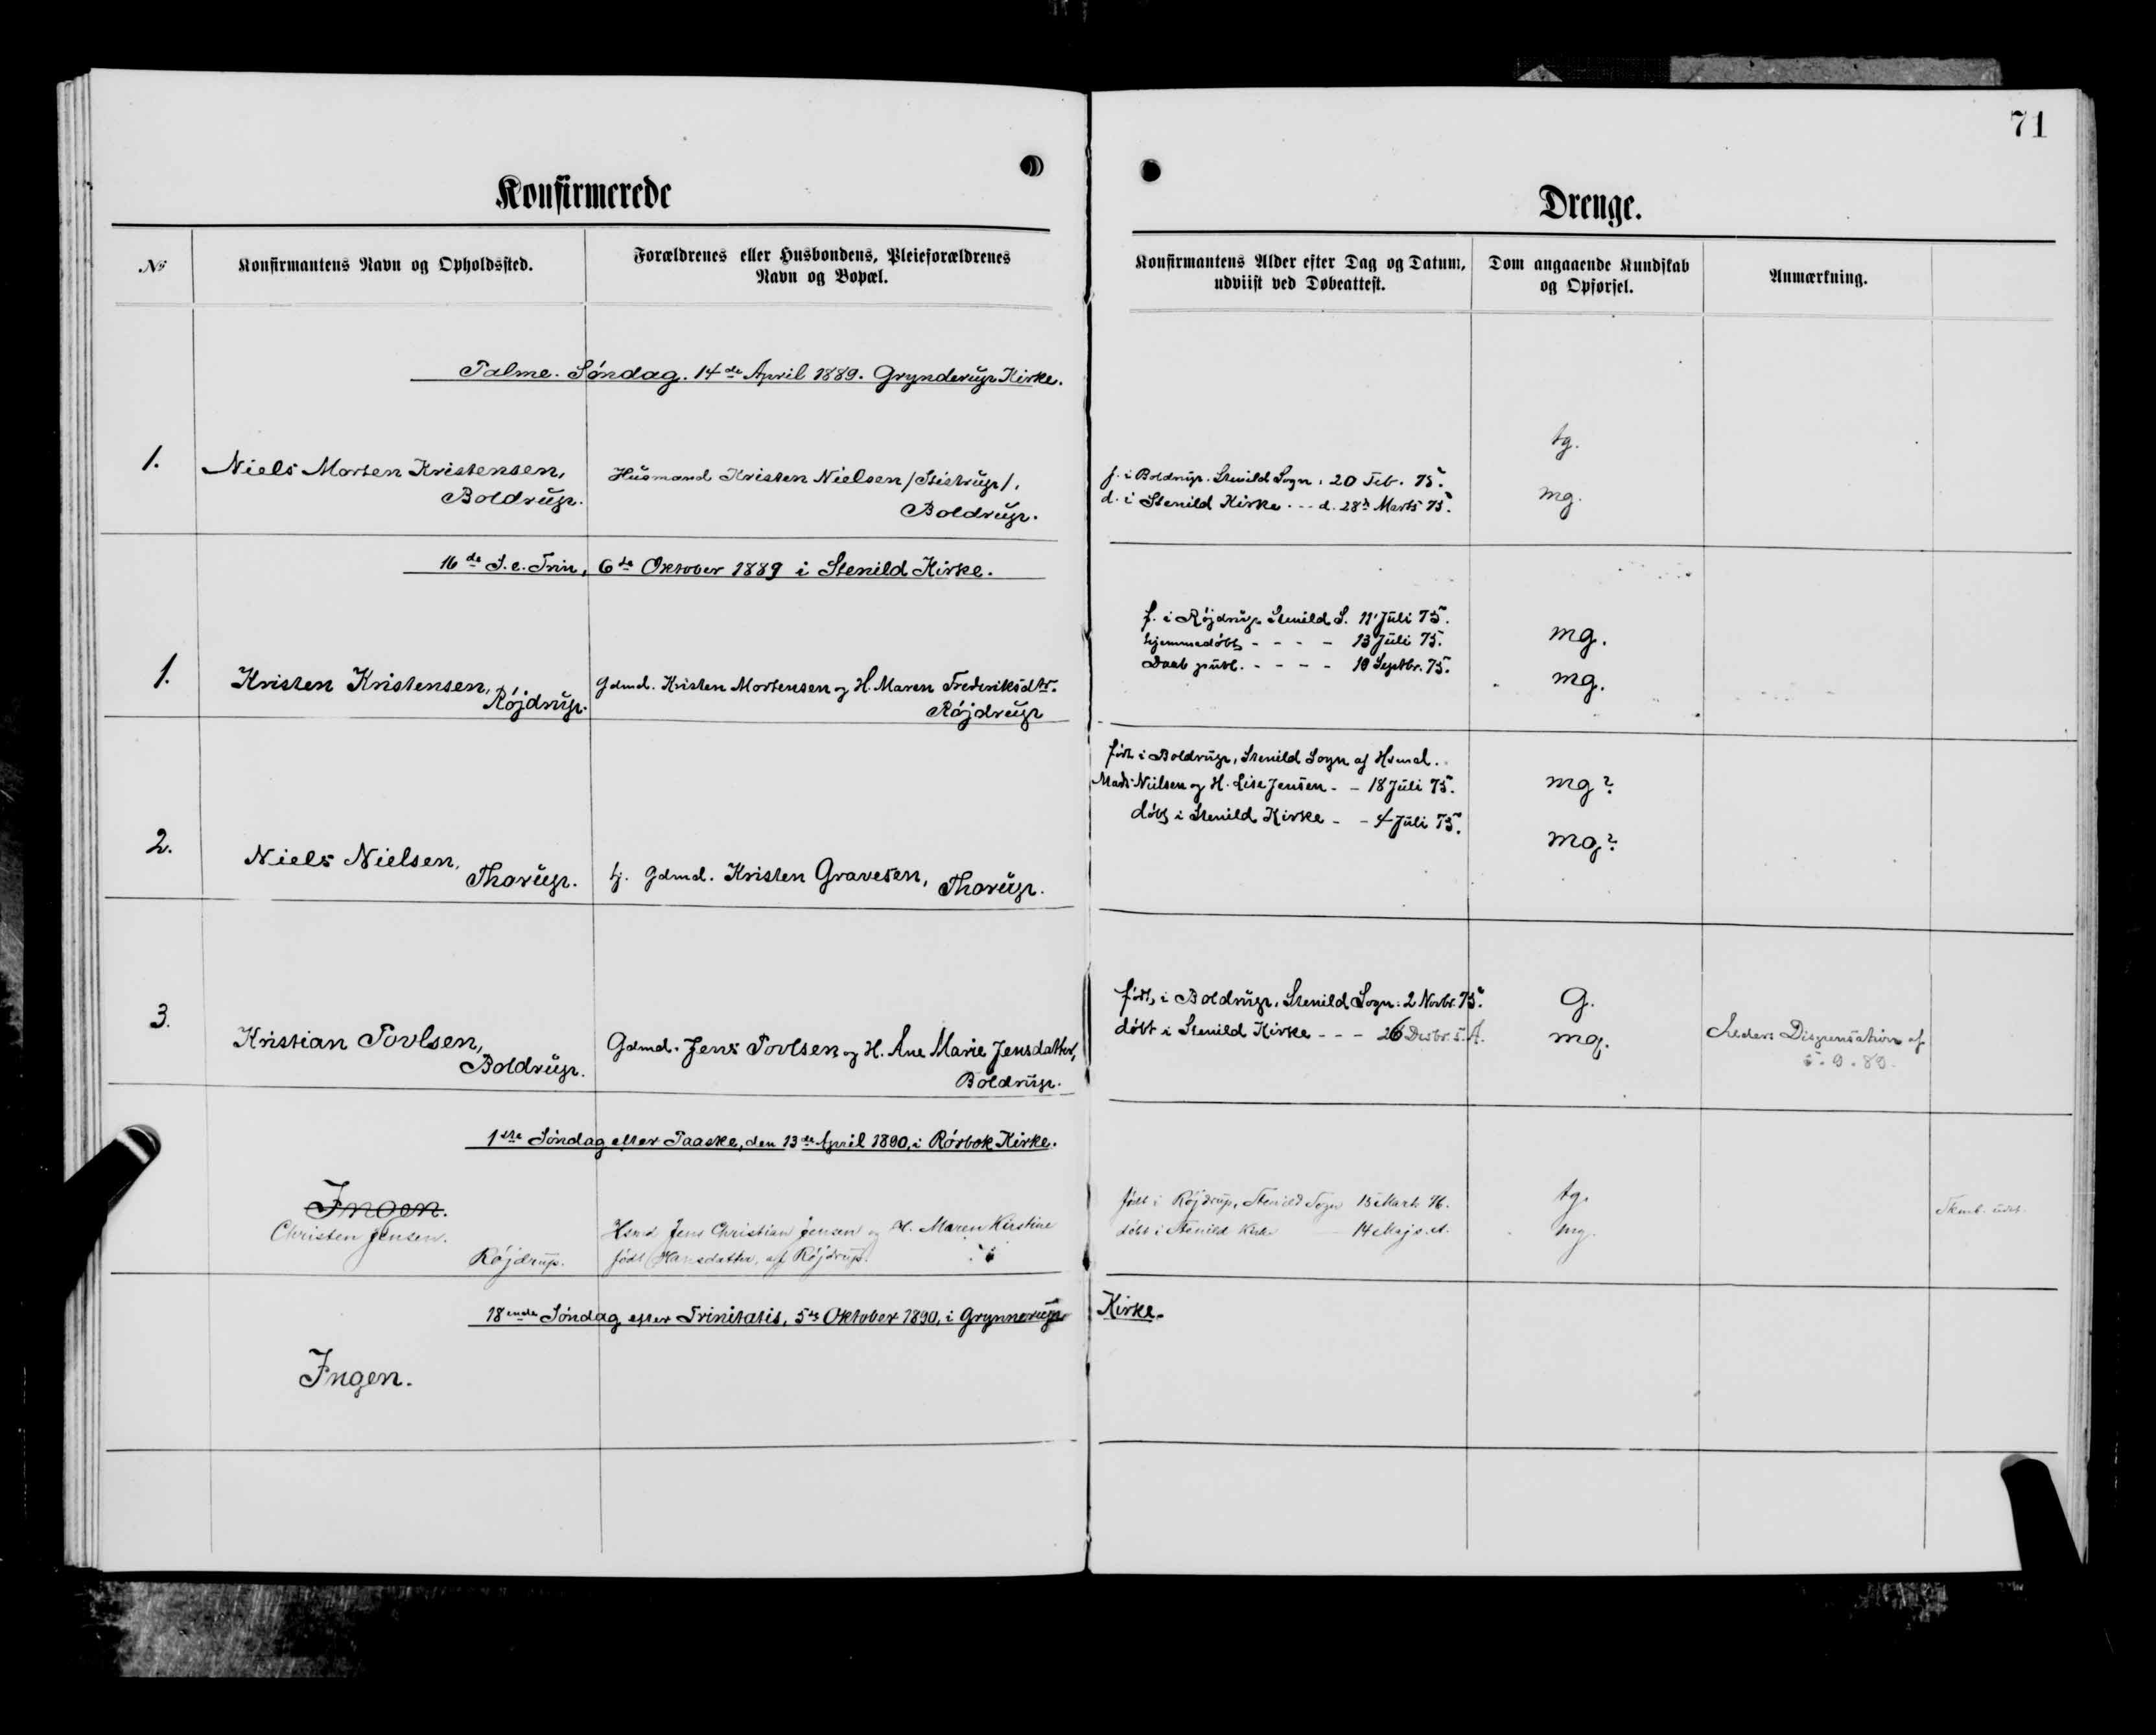 71
Konfirmerede
Drenge.
№ Konfirmantens Navn og Opholdssted. Forældrenes eller Husbondens, Pleieforældrenes
Navn og Bopæl.
Konfirmantens Alder efter Dag og Datum,
udviist ved Døbeattest.
Dom angaaende Kundskab
og Opførsel.
Anmærkning.
Palme. Søndag. 14de April 1889. Grynderup Kirke.
1. Niels Morten Kristensen,
Boldrup.
Husmand Kristen Nielsen /Stistrup/,
Boldrup.
f. i Boldrup. Stenild Sogn, 20 Feb. 75.
d. i Stenild Kirke. - - d. 28de Marts 75.
tg.
mg.
16de S. e. Trin, 6te Oktober 1889 i Stenild Kirke.
1. Kristen Kristensen,
Røjdrup.
Gdmd. Kristen Mortensen og H. Maren Frederiksdtr.
Røjdrup
f. i Røjdrup Stenild S. 11 Juli 75.
hjemmedøbt - - - - 13 Juli 75.
Daab publ. - - - - Septbr. 75.
mg.
mg.
2. Niels Nielsen,
Thorup.
tj. Gdmd. Kristen Gravesen,
Thorup.
født i Boldrup, Stenild Sogn af Hsmd.
Mads Nielsen og H. Lise Jensen - - 18 Juli 75.
døbt i Stenild Kirke - - 4 Juli 75.
mg?
mg?
3. Kristian Povlsen,
Boldrup.
Gdmd. Jens Povlsen og H. Ane Marie Jensdatter,
Boldrup.
født i Boldrup, Stenild Sogn: 2 Novbr. 75.
døbt i Stenild Kirke - - - 26 Decbr. s. A.
G.
mg.
Alders Dispensation af
9. 89.
1ste Søndag efter Paaske, den 13de April 1890, i Rørbæk Kirke.
Ingen.
Christen Jensen.
Røjdrup.
Hsmd Jens Christian Jensen og H. Maren Kirstine
født Hansdatter, af Røjdrup.
født i Røjdrup, Stenild Sogn 15 Marts 76.
døbt i Stenild Kirke — 14 Maj s. A.
tg.
mg.
18ende Søndag efter Trinitatis, 5te Oktober 1890, i Grynnerup Kirke.
Ingen.